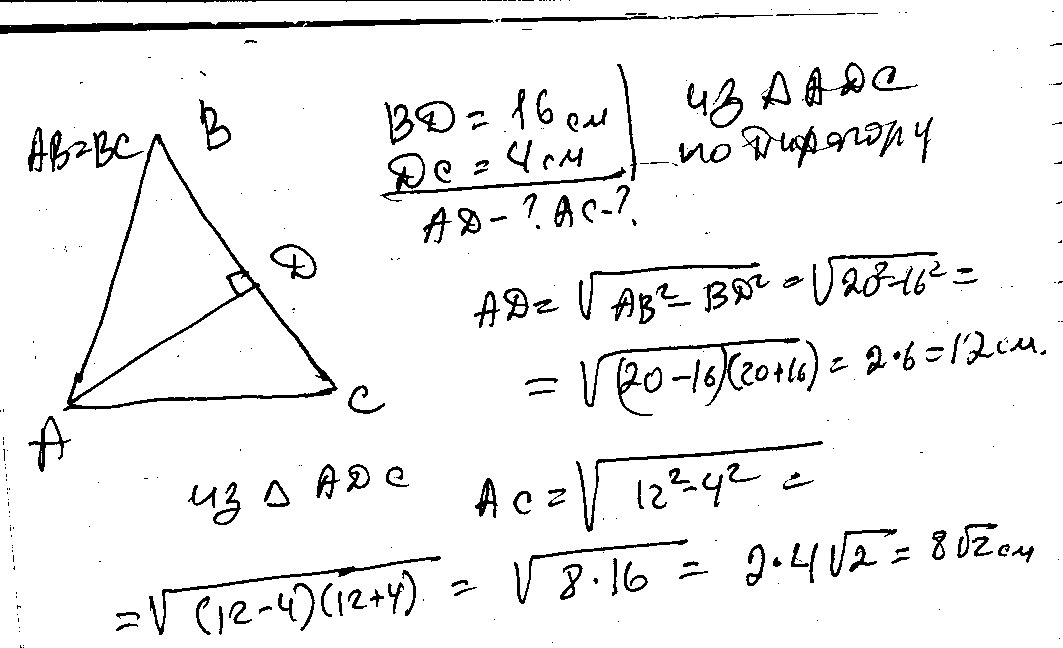 AB=BC
B
BD = 16 см
DC = 4 см
AD - ? AC - ?
из Δ ADC
по Пифагору
D
A
C
AD = √AB² - BD² = √20² - 16² =
= √(20-16)(20+16) = 2·6 = 12 см.
из Δ ADC
AC = √12² - 4² =
= √(12-4)(12+4) = √8·16 = 2·4√2 = 8√2 см